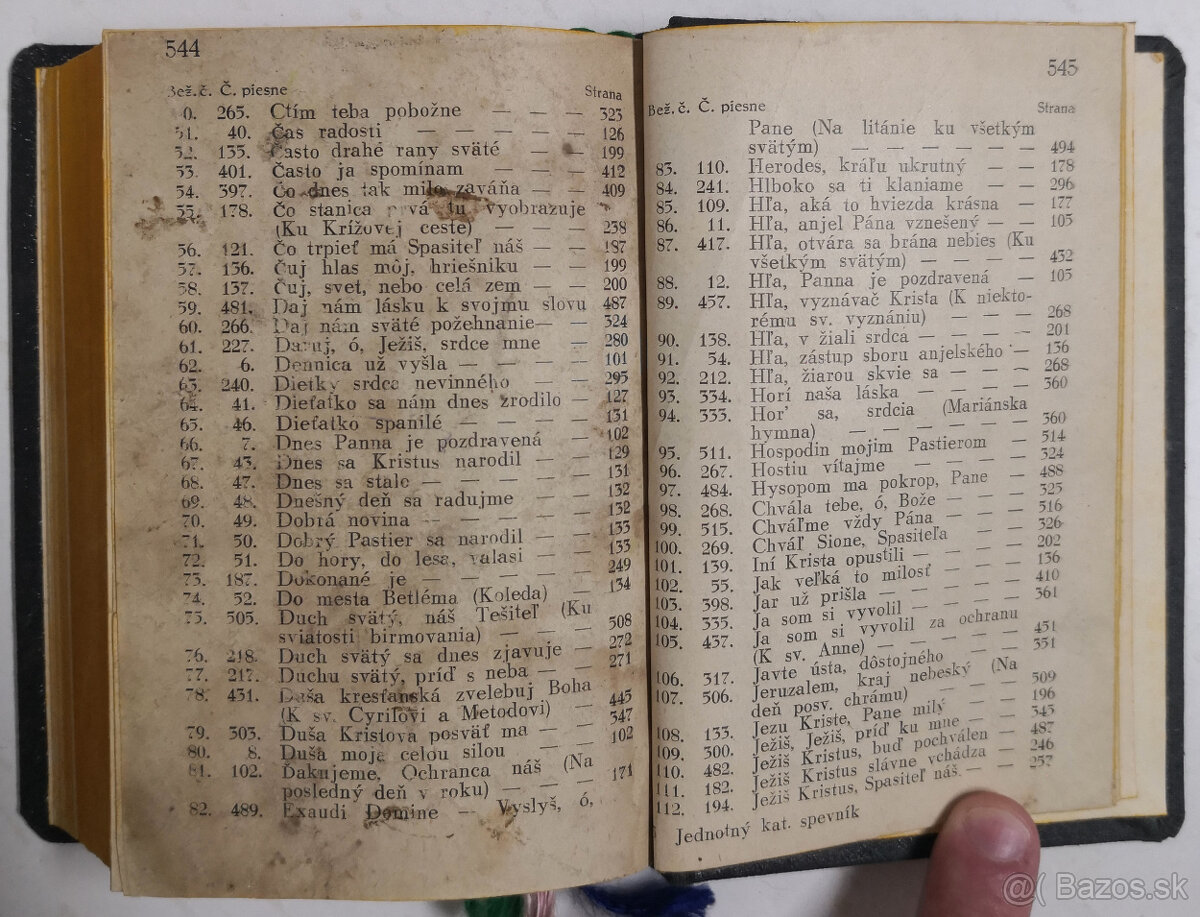 544
Bež.č. Č. piesne Strana
0. 265. Ctím teba pobožne — — — 323
51. 40. Čas radosti — — — — — 126
52. 135. Často drahé rany sväté — — 199
53. 401. Často ja spomínam — — — 412
54. 397. Čo dnes tak milo zaváňa — — 409
55. 178. Čo stanica prvá tu vyobrazuje
(Ku Krížovej ceste) — — — 238
56. 121. Čo trpieť má Spasiteľ náš — — 187
57. 136. Čuj hlas môj, hriešniku — — 199
58. 137. Čuj, svet, nebo celá zem — — 200
59. 481. Daj nám lásku k svojmu slovu 487
60. 266. Daj nám sväté požehnanie — — 324
61. 227. Daruj, ó, Ježiš, srdce mne — 280
62. 6. Dennica už vyšla — — — — 101
63. 240. Dietky srdca nevinného — — 295
64. 41. Dieťatko sa nám dnes zrodilo — 127
65. 46. Dieťatko spanilé — — — — 131
66. 7. Dnes Panna je pozdravená — — 102
67. 43. Dnes sa Kristus narodil — — 129
68. 47. Dnes sa stalo — — — — — 131
69. 48. Dnešný deň sa radujme — — — 132
70. 49. Dobrá novina — — — — — 132
71. 50. Dobrý Pastier sa narodil — — 133
72. 51. Do hory, do lesa, valasi — — 133
73. 187. Dokonané je — — — — — 249
74. 52. Do mesta Betléma (Koleda) — — 134
75. 505. Duch svätý, náš Tešiteľ (Ku
sviatosti birmovania) — — — 508
76. 218. Duch svätý sa dnes zjavuje — 272
77. 217. Duchu svätý, príď s neba — — 271
78. 431. Duša kresťanská zvelebuj Boha
(K sv. Cyrilovi a Metodovi) — 445
79. 303. Duša Kristova posväť ma — — 347
80. 8. Duša moja celou silou — — 102
81. 102. Ďakujeme, Ochranca náš (Na
posledný deň v roku) — — — 171
82. 489. Exaudi Domine — Vyslyš, ó,
545
Bež. č. Č. piesne Strana
Pane (Na litánie ku všetkým
svätým) — — — — — — 494
83. 110. Herodes, kráľu ukrutný — — 178
84. 241. Hlboko sa ti klaniame — — 296
85. 109. Hľa, aká to hviezda krásna — 177
86. 11. Hľa, anjel Pána vznešený — — 105
87. 417. Hľa, otvára sa brána nebies (Ku
všetkým svätým) — — — — 432
88. 12. Hľa, Panna je pozdravená — 105
89. 457. Hľa, vyznávač Krista (K niekto-
rému sv. vyznániu) — — — 268
90. 138. Hľa, v žiali srdca — — — — 201
91. 54. Hľa, zástup sboru anjelského — 136
92. 212. Hľa, žiarou skvie sa — — — 268
93. 334. Horí naša láska — — — — 360
94. 333. Hor' sa, srdcia (Mariánska
hymna) — — — — — — 360
95. 511. Hospodin mojim Pastierom — 514
96. 267. Hostiu vítajme — — — — 324
97. 484. Hysopom ma pokrop, Pane — 488
98. 268. Chvála tebe, ó, Bože — — — 325
99. 515. Chváľme vždy Pána — — — 516
100. 269. Chváľ Sione, Spasiteľa — — 326
101. 139. Iní Krista opustili — — — — 202
102. 55. Jak veľká to milosť — — — 136
103. 398. Jar už prišla — — — — — 410
104. 335. Ja som si vyvolil — — — — 361
105. 437. Ja som si vyvolil za ochranu
(K sv. Anne) — — — — — 451
106. 317. Javte ústa, dôstojného — — — 351
107. 506. Jeruzalem, kraj nebeský (Na
deň posv. chrámu) — — — 509
108. 133. Jezu Kriste, Pane milý — — 196
109. 300. Ježiš, Ježiš, príď ku mne — — 343
110. 482. Ježiš Kristus, buď pochválen — 487
111. 182. Ježiš Kristus slávne vchádza — 246
112. 194. Ježiš Kristus, Spasiteľ náš. — — 257
Jednotný kat. spevník
@( Bazos.sk